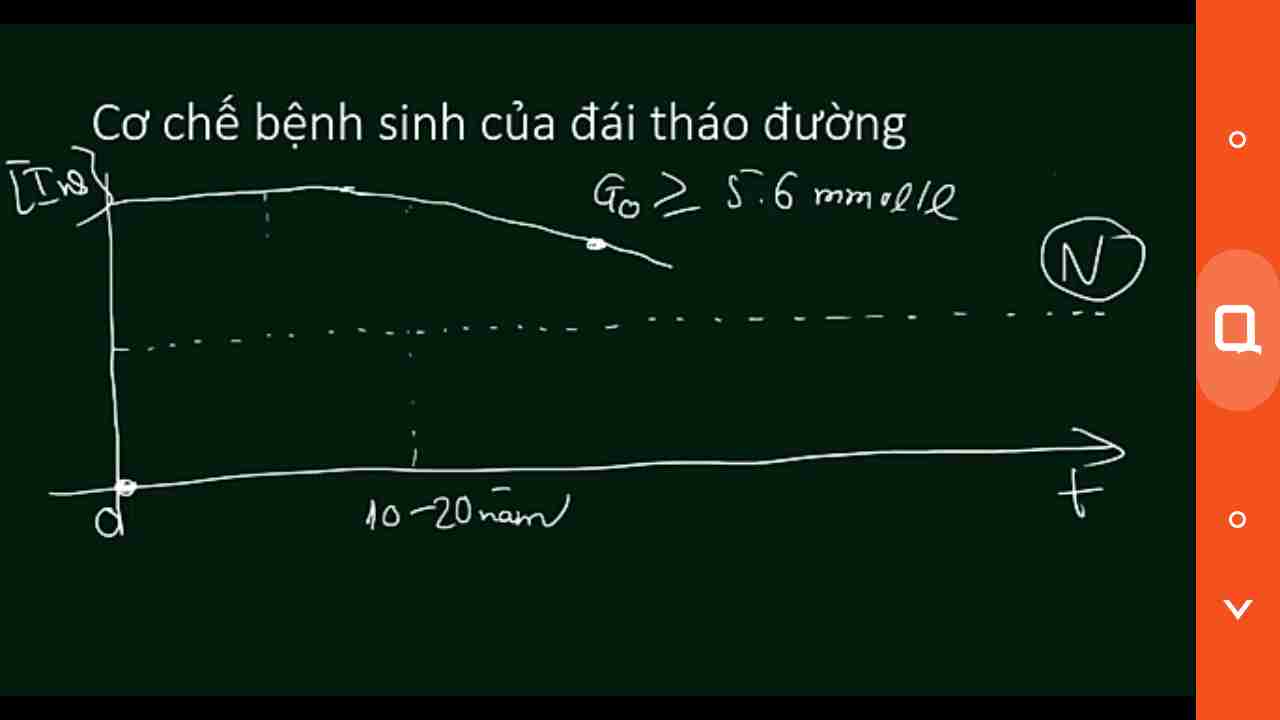 Cơ chế bệnh sinh của đái tháo đường
[Ins]
G₀ ≥ 5.6 mmol/l
N
t
10-20 năm